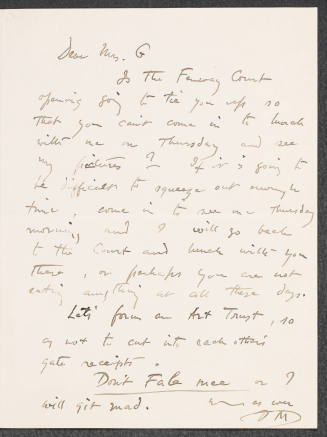 Dear Mrs. G
Is the Fenway Court
opening going to tie you up so
that you can't come in to lunch
with me on Thursday and see
my pictures? If it is going to
be difficult to squeeze out enough
time, come in to see me Thursday
morning and I will go back
to the Court and lunch with you
there, or perhaps you are not
eating anything at all these days.
Let's form an Art Trust, so
as not to cut into each other's
gate receipts.
Don't Fale mee or I
will git mad. as ever
DM